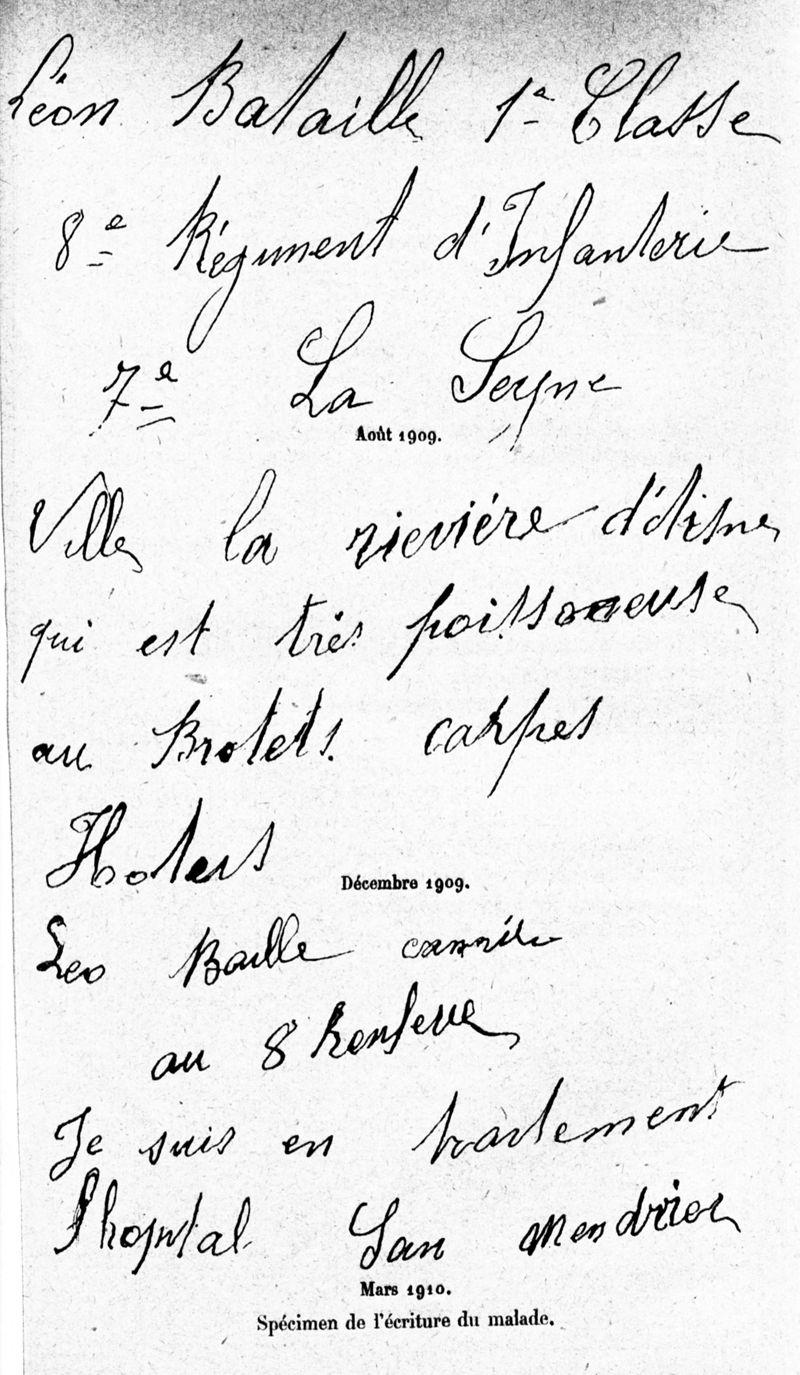 Léon Bataille 1e Classe
8e Régument d'Infanterie
7e La Seyne
Août 1909.
Ville la rieviére d'étisne
qui est très poissoneuse
au Brotets. carpes
Hotets
Décembre 1909.
Leo Baille
au 8
Je suis en traitement
l'hopital San Mendrier
Mars 1910.
Spécimen de l'écriture du malade.